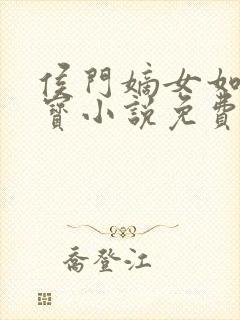 侯門嫡女如
寶小說免費
喬登江